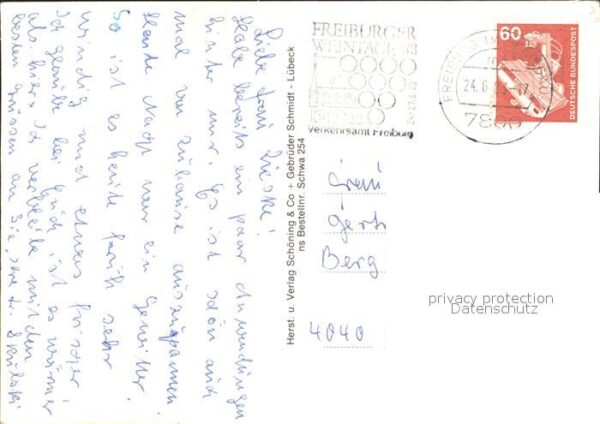 Liebe Frau Dieske!
Habe bereits ein paar Anwendungen
hinter mir. Es ist schön auch
mal von Zuhause auszuspannen!
Heute Nacht war ein Gewitter.
So ist es heute früh sehr
windig und etwas frischer!
Ich glaube bei Euch ist es wärmer
als hier. Ich verbleibe mit den
besten Grüssen an Sie,
Herst. u. Verlag Schöning & Co + Gebrüder Schmidt - Lübeck
ns Bestellnr. Schwa 254
FREIBURGER
WEINTAGE
Verkehrsamt Freiburg
FREIBURG
24.6
7800
60
DEUTSCHE BUNDESPOST
Frau
Gert
Berg
4040
privacy protection
Datenschutz